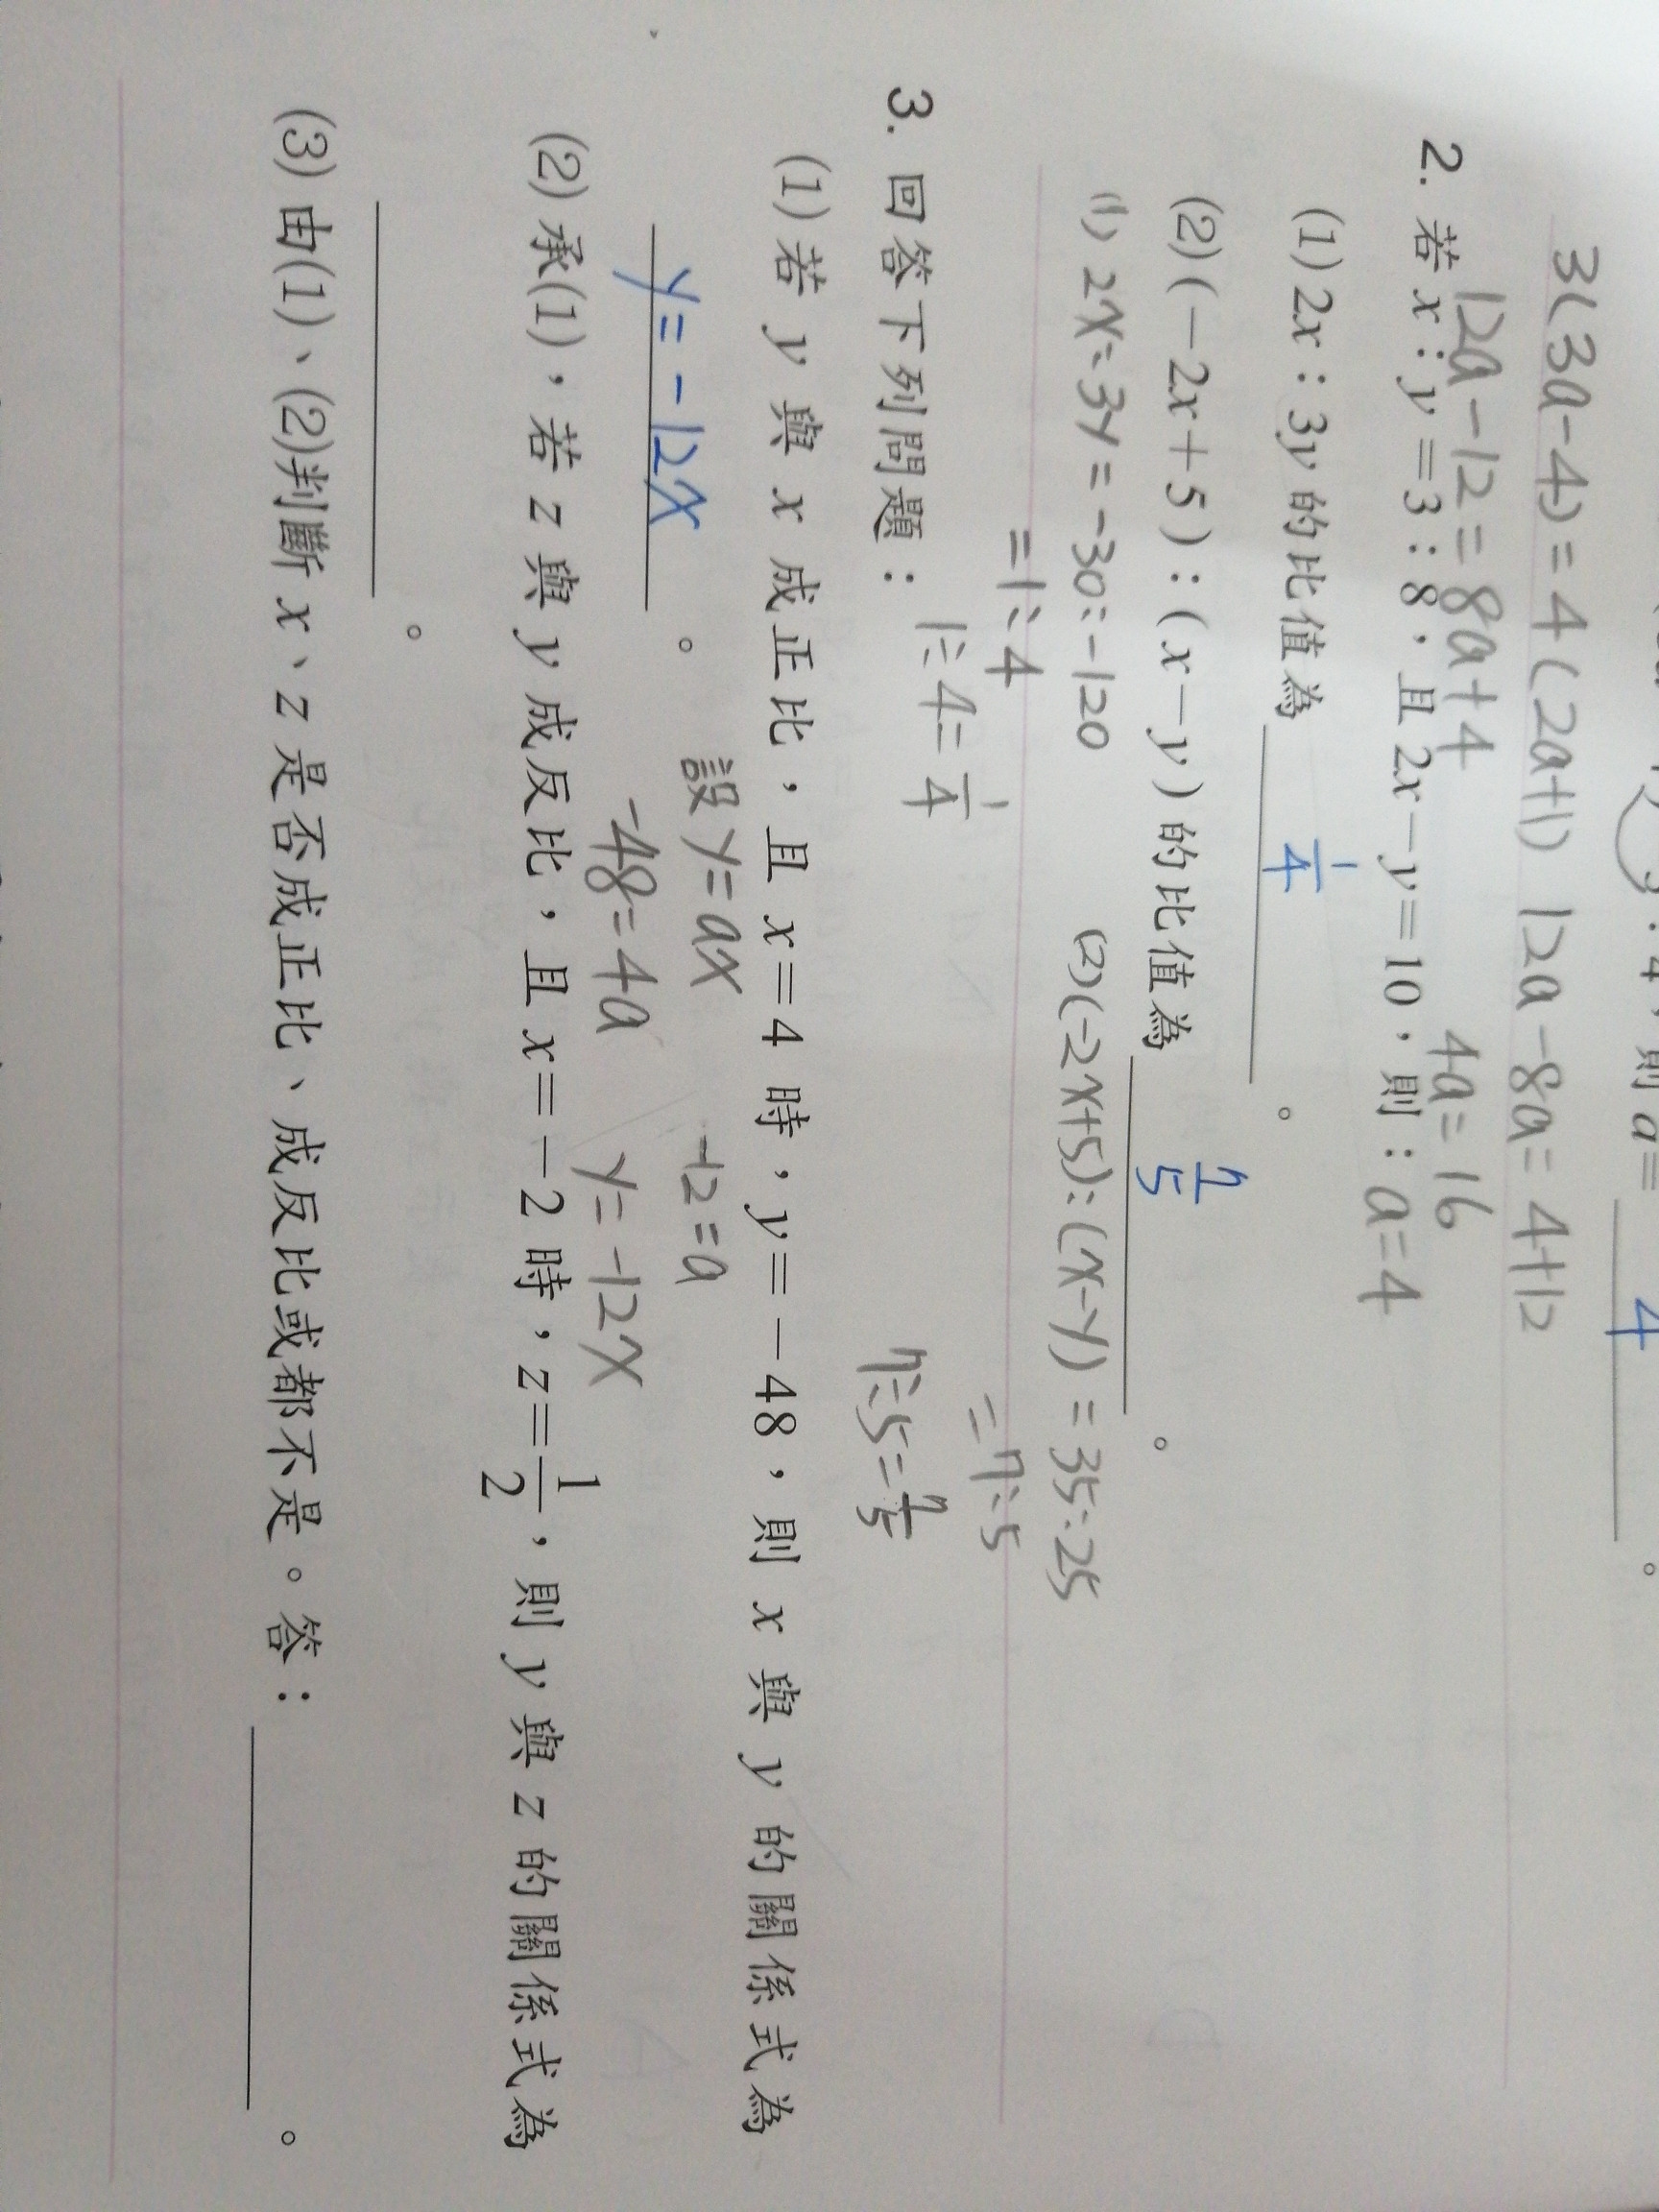 3:4，則 a= 4 。
3(3a-4)=4(2a+1) 12a-8a=4+12
12a-12=8a+4 4a=16
2. 若 x：y=3：8，且 2x－y=10，則： a=4
(1) 2x：3y 的比值為 1/4 。
(2) (－2x+5)：(x－y) 的比值為 7/5 。
(1) 2x:3y=-30:-120 (2)(-2x+5):(x-y)=35:25
=1:4 =7:5
1:4=1/4 7:5=7/5
3. 回答下列問題：
(1) 若 y 與 x 成正比，且 x=4 時，y=－48，則 x 與 y 的關係式為
y=-12x 。 設 y=ax -12=a
-48=4a y=-12x
(2) 承(1)，若 z 與 y 成反比，且 x=－2 時，z=1/2，則 y 與 z 的關係式為
。
(3) 由(1)、(2)判斷 x、z 是否成正比、成反比或都不是。答： 。